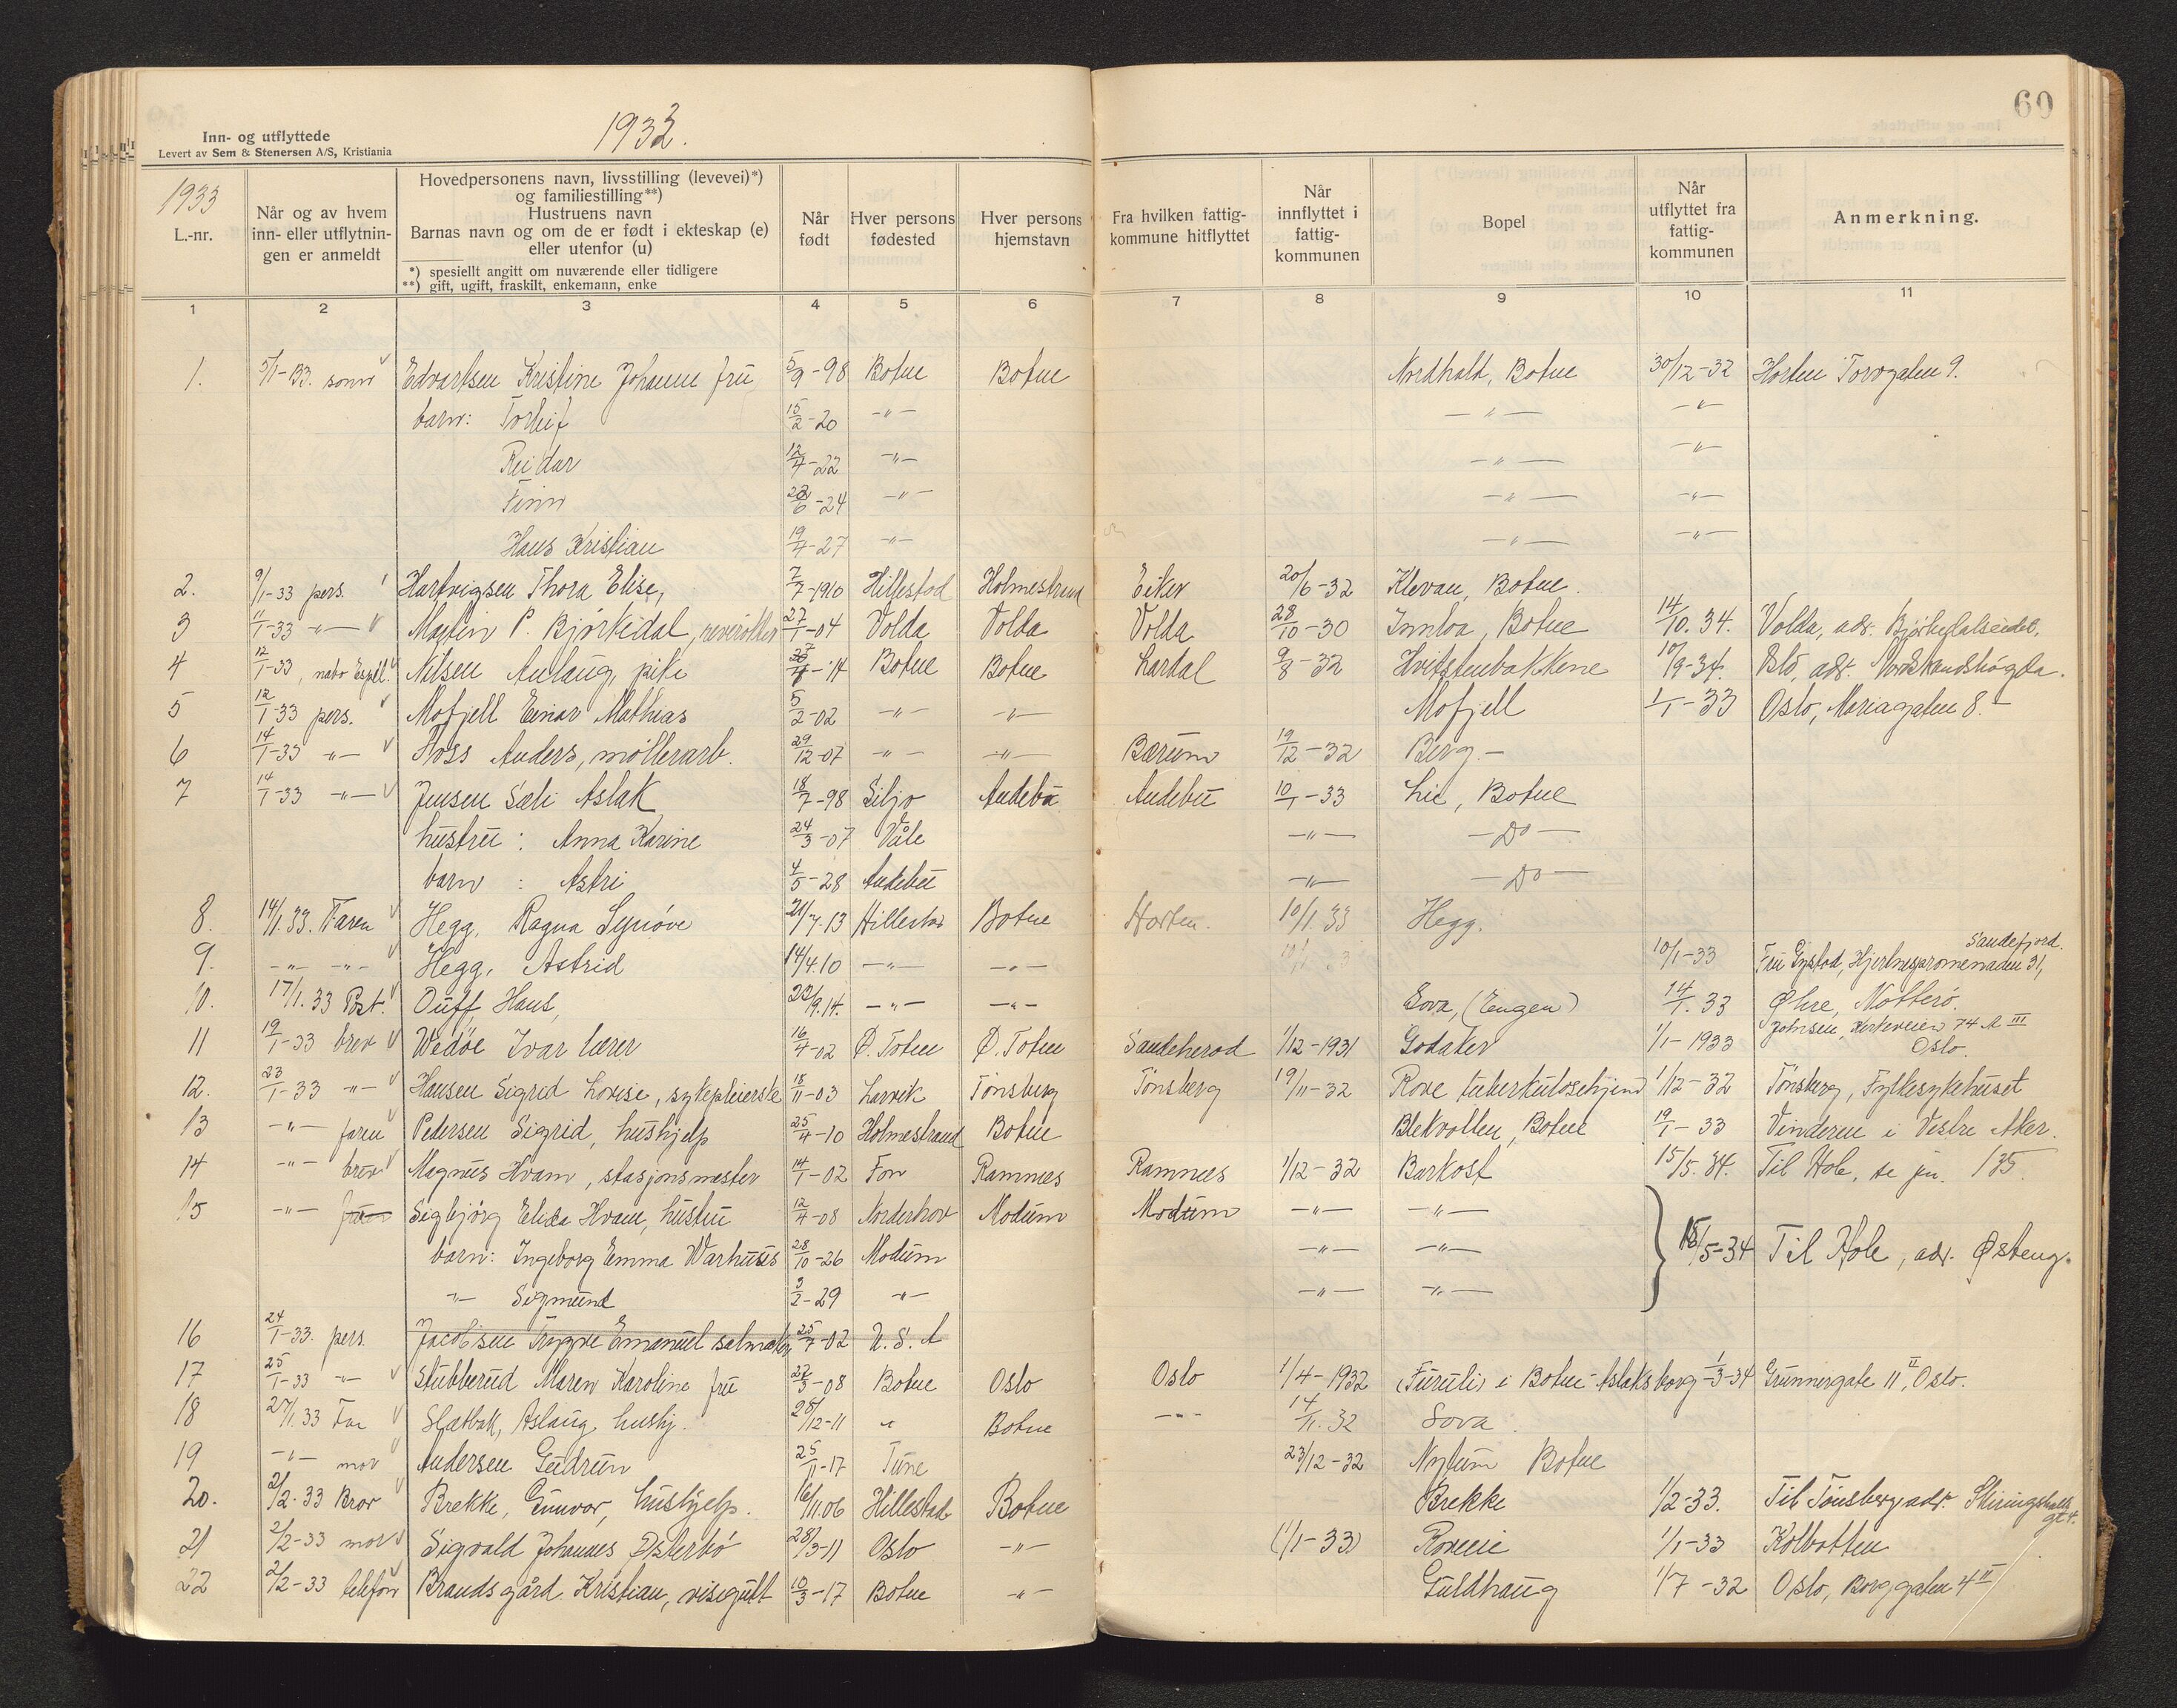 60
Inn- og utflyttede
Levert av Sem & Stenersen A/S, Kristiania
1933.
1933
L.-nr.
Når og av hvem inn- eller utflytnin- gen er anmeldt
Hovedpersonens navn, livsstilling (levevei)*)
og familiestilling**)
Hustruens navn
Barnas navn og om de er født i ekteskap (e)
eller utenfor (u)
*) spesiellt angitt om nuværende eller tidligere
**) gift, ugift, fraskilt, enkemann, enke
Når født
Hver persons fødested
Hver persons hjemstavn
Fra hvilken fattig- kommune hitflyttet
Når innflyttet i fattig- kommunen
Bopel
Når utflyttet fra fattig- kommunen
Anmerkning.
1 2 3 4 5 6 7 8 9 10 11
1. 5/1-33. sønn Edvartsen Kristine Johanne fru 5/9-98 Botne Botne Nordhald, Botne 30/12-32 Horten Torvgaten 9.
barn: Torleif 15/2-20 -"- -"- -"-
Reidar 12/4-22 -"- -"- -"-
Finn 6-24 -"- -"- -"-
Hans Kristian 19/4-27 -"- -"- -"-
2. 9/1-33 pers. Hartvigsen Thora Elise, 7/7-1910 Hillestad Holmestrand Eiker 20/6-32 Klevan, Botne.
3 11/1-33 -"- Martin P. Bjørkedal, 27/1-04 Volda Volda Volda 28/10-30 Innloa, Botne 14/10.34. Volda, adr.
4 12/1-33, Nilsen Aslaug, pike -14 Botne Botne Lardal 9/8-32 Hvitstenbakkene 10/9-34. Oslo, adr. Nordstrandshøgda.
5 12/1-33 pers. Mofjell Einar Mathias 5/2-02 -"- -"- Mofjell 1/1-33 Oslo, Mariagaten 8.-
6 14/1-33 -"- Foss Anders, møllerarb. 29/12-07 -"- -"- Bærum 19/12-32 Berg.-
7 14/1-33 -"- Jensen Sæli Aslak 18/7-98 Siljo Andebu Andebu 10/1-33 Lie, Botne
hustru: Anna Karine 24/3-07 Våle -"- -Do-
barn: Astri 4/5-28 Andebu -"- -Do-
8. 14/1.33. Faren Hegg, Ragna Synøve 21/7.13 Hillestad Botne Horten. 10/1.33 Hegg.
9. -"- -"- Hegg, Astrid 14/4.10 -"- -"- 10/1-33 Fru Gystad, Hjertnespromenaden 31, Sandefjord.
10. 17/1.33 Post. Ouff, Hans, 22/9.14. -"- -"- Sova, (Engen) 14/1.33 Øhre, Nøtterø.
11 19/1-33 brev Wedøe Ivar lærer 16/4-02 Ø. Toten Ø. Toten Sandeherad 1/12-1931 Godaker 1/1-1933 Johnsen, Kirkeveien 74 A III Oslo.
12. 23/1-33 -"- Hansen Sigrid Lovise, sykepleierske 18/11-03 Larvik Tønsberg Tønsberg 19/11-32 Rove tuberkulosehjem 1/12-32 Tønsberg, Fylkesykehuset
13 -"- faren Pedersen Sigrid, hushjelp 25/4-10 Holmestrand Botne Blekvollen, Botne 19/1-33 Vinderen i Vestre Aker.
14 -"- brev Magnus Hvam, stasjonsmester 14/1-02 Fon Ramnes Ramnes 1/12-32 Barkost 15/5.34. Til Hole, se jn. 135.
15 -"- Sigbjørg Elida Hvam, hustru 12/4-08 Norderhov Modum Modum -"- -"-
barn: Ingeborg Emma Warhuus 28/10-26 Modum -"- -"- 15/5-34 Til Hole, adr. Østeng.
-"- Sigmund 3/2-29 -"- -"- -"-
16 24/1-33. pers. Jacobsen Trygve Emanuel salmaker 25/7-02 U.S.A
17 25/1-33 -"- Stubberud Maren Karoline fru 27/3-08 Botne Oslo Oslo 1/4-1932 (Furuli) i Botne-Aslaksborg 1/3-34 Grünnergate 11 II, Oslo.
18 27/1.33 Far Slatbak, Aslaug, hushj. 28/12-11 " Botne -"- 14/11.32 Sova.
19 -"- mor Andersen Gudrun 25/11-17 Tune 23/12-32 Nytun Botne
20. 2/2.33 Bror Brekke, Gunvor, hushjelp. 16/11.06 Hillestad Botne Brekke 1/2-33. Til Tønsberg adr. Skiringshallsgt 4.
21 2/2-33 mor Sigvald Johannes Østerbö 28/3-11 Oslo -"- (1/1-33) Roveie 1/1-33 Kolbotten
22 2/2-33 telefon Brandsgård Kristian, visergutt 10/3-17 Botne -"- Guldhaug 1/7-32 Oslo, Borggaten 4 II